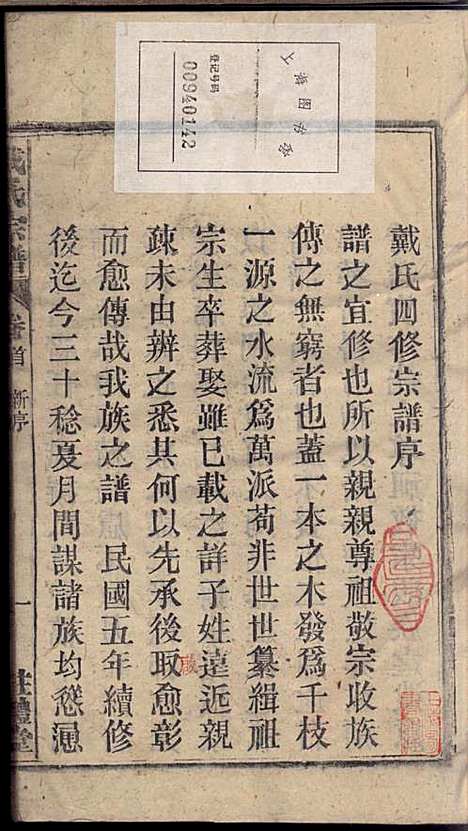 上海图书馆
登记号码
00940142
戴氏四修宗譜序
譜之宜修也所以親親尊祖敬宗收族
傳之無窮者也蓋一本之木發爲千枝
一源之水流爲萬派苟非世世纂緝祖
宗生卒葬娶雖已載之詳子姓遠近親
疎未由辨之悉其何以先承後啟愈彰
而愈傳哉我族之譜 民國五年續修
後迄今三十稔夏月間謀諸族均慫慂
戴氏宗譜
卷首 新序
一